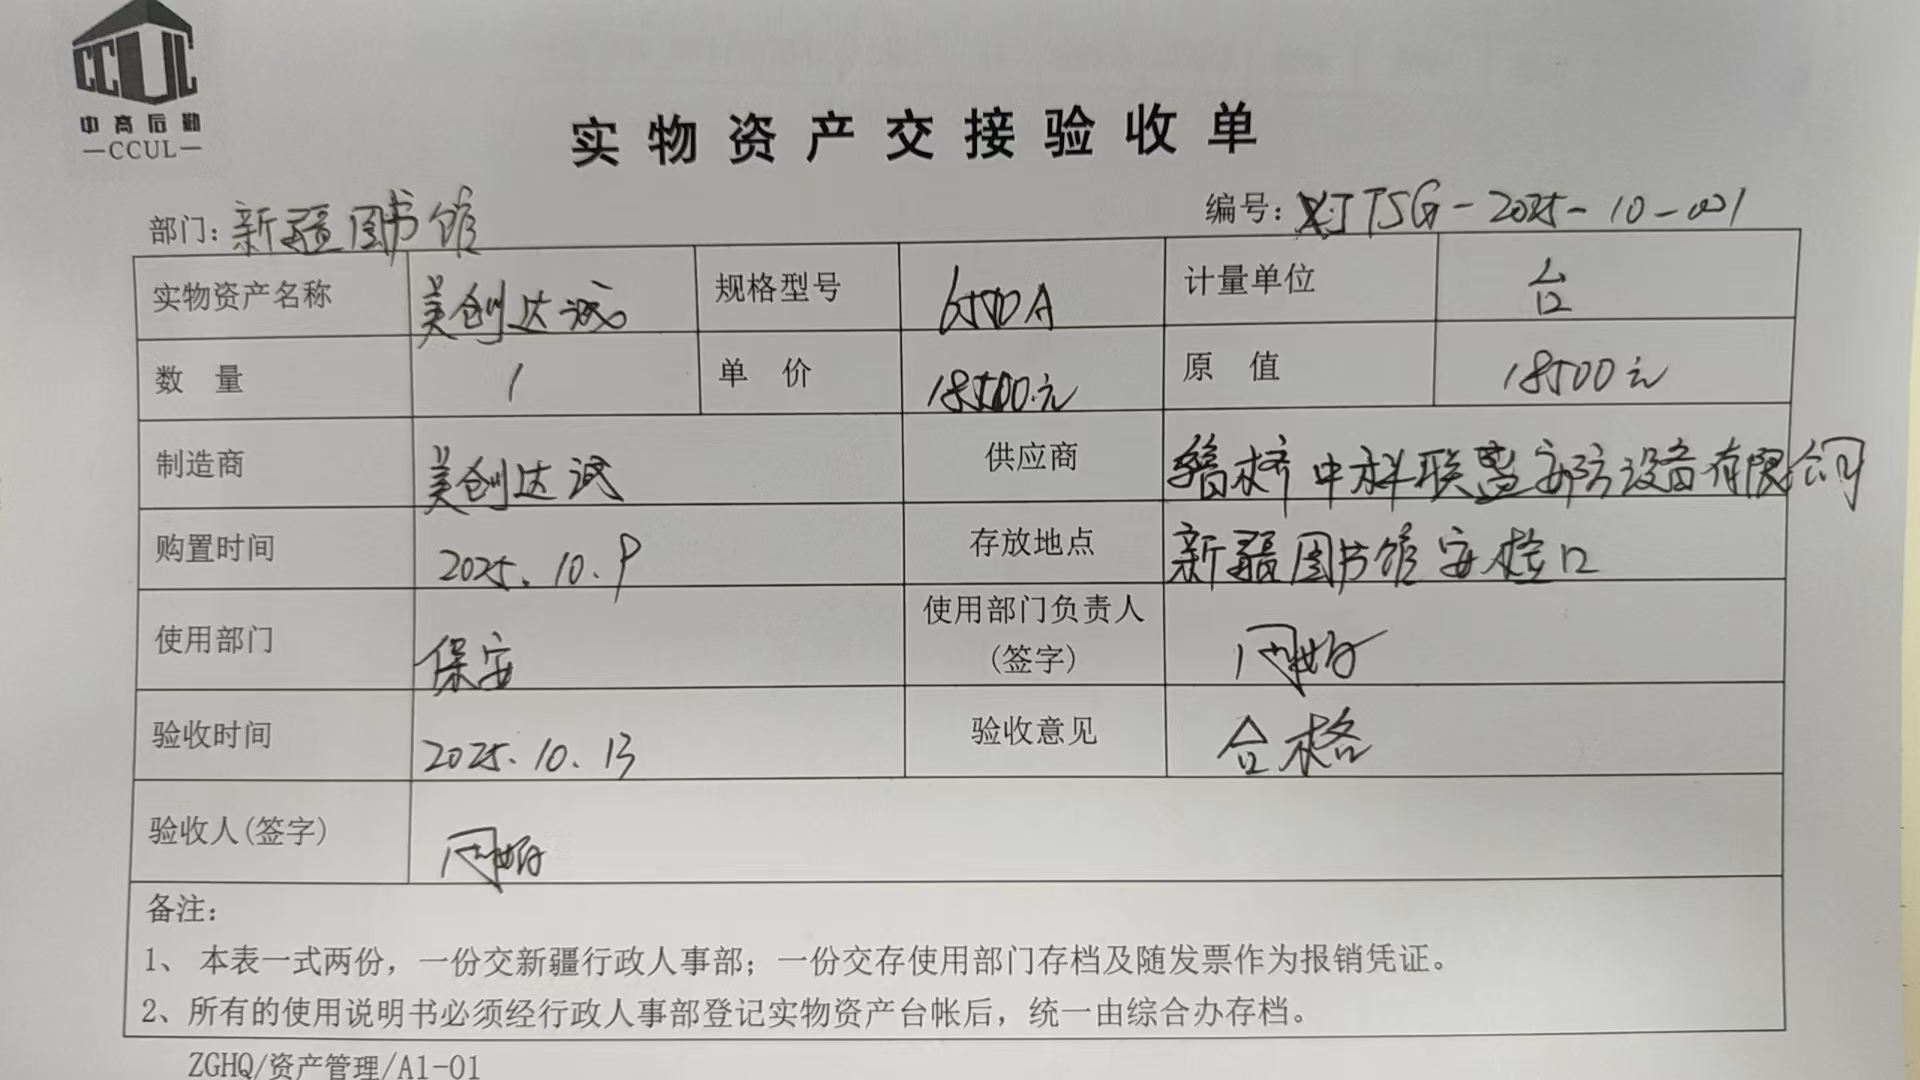 CCUL
中高后勤
—CCUL—
实物资产交接验收单
部门：新疆图书馆
编号：XJTSG-2025-10-001
实物资产名称 美创达诚 规格型号 6550A 计量单位 台
数 量 1 单 价 18500元 原 值 18500元
制造商 美创达诚 供应商 中科联盟安防设备有限公司
购置时间 2025.10.9 存放地点 新疆图书馆安检口
使用部门 保安 使用部门负责人
(签字)
验收时间 2025.10.13 验收意见 合格
验收人(签字)
备注：
1、 本表一式两份，一份交新疆行政人事部；一份交存使用部门存档及随发票作为报销凭证。
2、所有的使用说明书必须经行政人事部登记实物资产台帐后，统一由综合办存档。
ZGHQ/资产管理/A1-01